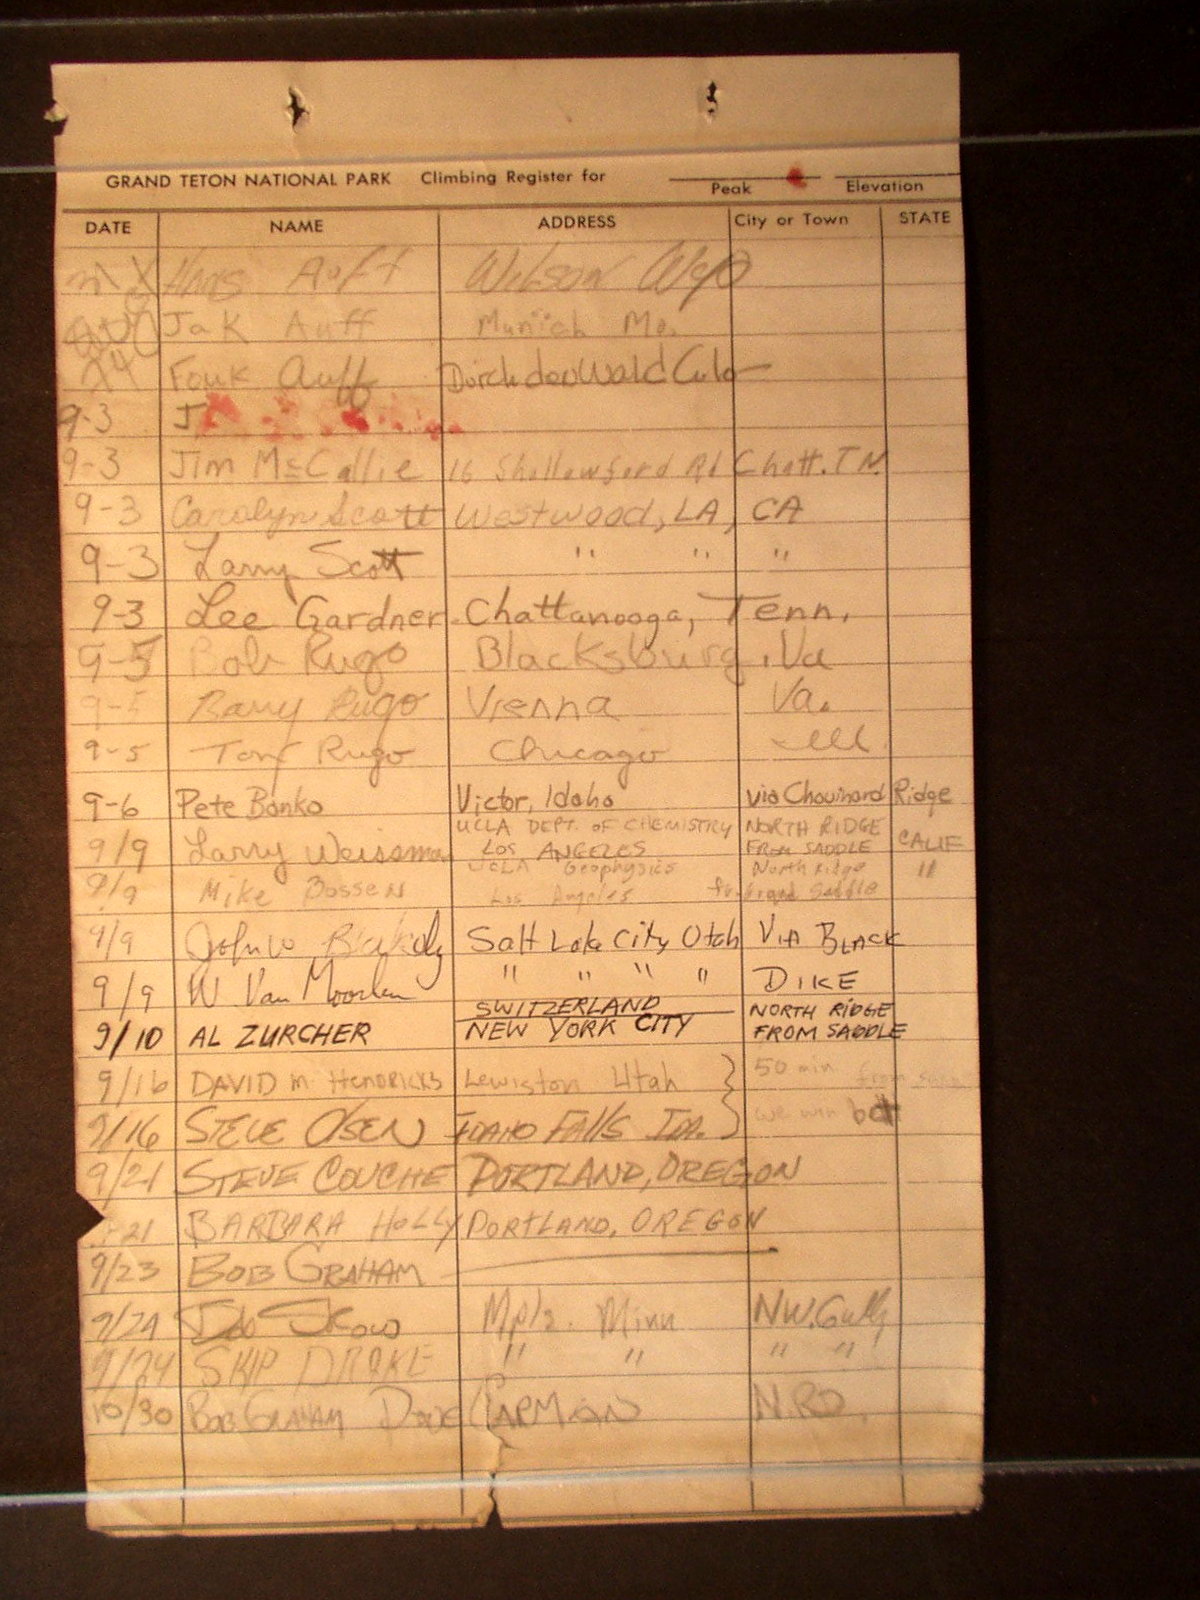 GRAND TETON NATIONAL PARK Climbing Register for
Peak Elevation
DATE NAME ADDRESS City or Town STATE
Hans Auft Wilson Wyo
Jak Auff Munich Mo.
24 Fouk Auff Durch den Wald Colo
9-3 J
9-3 Jim McCallie 16 Shallowford Rd Chatt. TN
9-3 Carolyn Scott Westwood, LA, CA
9-3 Larry Scott " " "
9-3 Lee Gardner. Chattanooga, Tenn.
9-5 Bob Rugo Blacksburg, Va
9-5 Barry Rugo Vienna Va.
9-5 Tony Rugo Chicago Ill.
9-6 Pete Banko Victor, Idaho via Chouinard Ridge
UCLA DEPT. OF CHEMISTRY NORTH RIDGE
9/9 Larry Weissman LOS ANGELES FROM SADDLE CALIF
UCLA Geophysics North Ridge "
9/9 Mike Bossen Los Angeles Saddle
9/9 John W Salt Lake City, Utah VIA BLACK
9/9 W. Van " " " " DIKE
SWITZERLAND NORTH RIDGE
9/10 AL ZURCHER NEW YORK CITY FROM SADDLE
9/16 DAVID M HENDRICKS Lewiston Utah 50 min from
9/16 STEVE OLSEN IDAHO FALLS IDA. we won bet
9/21 STEVE COUCHE PORTLAND, OREGON
21 BARBARA HOLLY PORTLAND, OREGON
9/23 BOB GRAHAM
9/24 Skow Mpls. Minn NW. Gully
9/24 SKIP DRAKE " " " "
10/30 BOB GRAHAM Dave CARMAN N.RD.